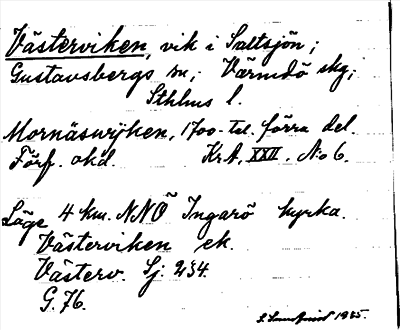 Västerviken, vik i Saltsjön;
Gustavsbergs sn; Värmdö skg;
Sthlms l.
Mornäswijken, 1700-tal. förra del.
Förf. okd. KrA, XXII. No 6.
Läge 4 km. NNÖ Ingarö kyrka.
Västerviken ek.
Västerv. Sj. 234.
G. 76.
1935.